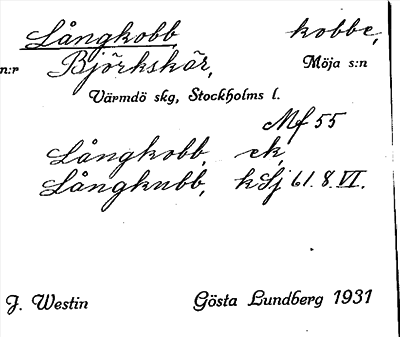 Långkobb, kobbe,
n:r Björkskär, Möja s:n
Värmdö skg, Stockholms l.
Mf 55
Långkobb, ek,
Långkubb, kSj 61.8.VI.
J. Westin Gösta Lundberg 1931